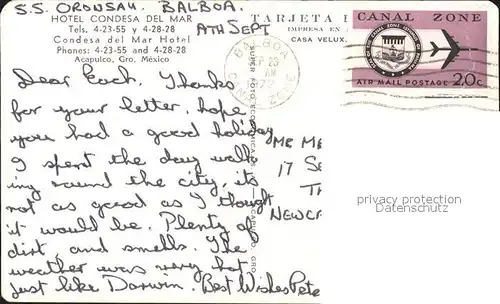 S.S. ORONSAY. BALBOA.
HOTEL CONDESA DEL MAR
Tels. 4-23-55 y 4-28-28
Condesa del Mar Hotel
Phones: 4-23-55 and 4-28-28
Acapulco, Gro. México
7TH SEPT
TARJETA
IMPRESA EN
CASA VELUX.
BALBOA
CANAL ZONE
AIR MAIL POSTAGE 20c
Dear Each. Thanks
for your letter, hope
you had a good holiday
I spent the day walk
ing round the city, its
not as good as I thought
it would be. Plenty of
dirt and smells. The
weather was very hot
just like Darwin. Best Wishes Pete
MR ME
17 SE
TH
NEWCA
privacy protection
Datenschutz